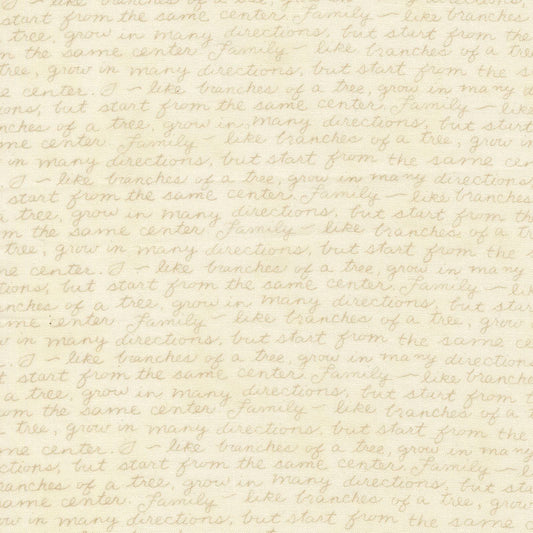 like branches of a tree, grow in many directions,
start from the same center. Family - like branches
tree, grow in many directions, but start from the
the same center Family - like branches of a tree
tree, grow in many directions, but start from the
center. I - like branches of a tree, grow in many
but start from the same center. Family - like
of a tree, grow in many directions, but start
center. Family - like branches of a tree, grow in
in many directions, but start from the same
I - like branches of a tree, grow in many directions
start from the same center. Family - like branches
a tree, grow in many directions, but start from
the same center Family - like branches of a
tree, grow in many directions, but start from the
center. I - like branches of a tree, grow in many
but start from the same center. Family -
of a tree, grow in many directions, but
center Family - like branches of a tree, grow
in many directions, but start from the same
I - like branches of a tree, grow in many
start from the same center. Family - like
a tree, grow in many directions, but start from
the same center Family - like branches of a
tree, grow in many directions, but start from the
center. I - like branches of a tree, grow in many
but start from the same center. Family -
of a tree, grow in many directions, but
same center. Family - like branches of a tree, grow
in many directions, but start from the same